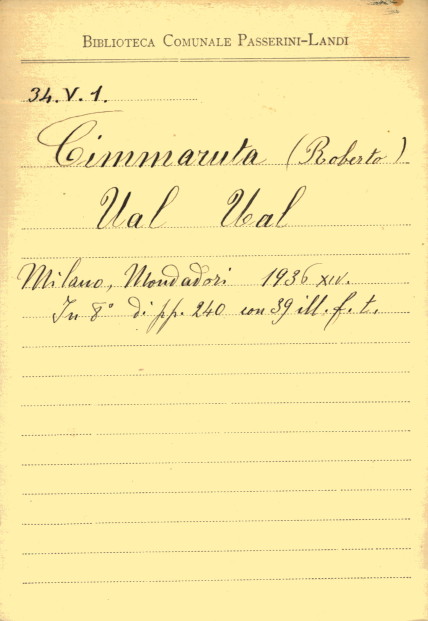 BIBLIOTECA COMUNALE PASSERINI-LANDI
34.V.1.
Cimmaruta (Roberto)
Ual Ual
Milano, Mondadori 1936 XIV.
In 8° di pp. 240 con 39 ill. f. t.